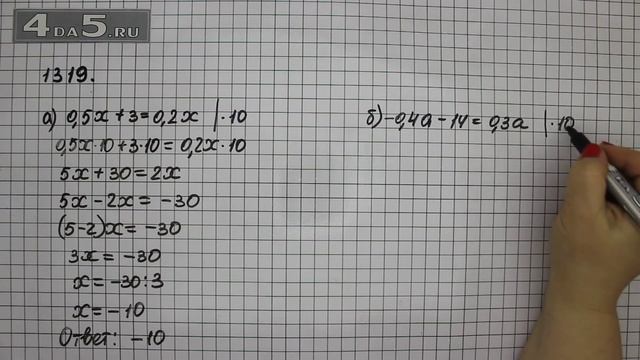 4DA5.RU
1319.
а) 0,5x + 3 = 0,2x | · 10
0,5x · 10 + 3 · 10 = 0,2x · 10
5x + 30 = 2x
5x − 2x = −30
(5−2)x = −30
3x = −30
x = −30 : 3
x = −10
Ответ: −10
б) −0,4a − 14 = 0,3a | · 10